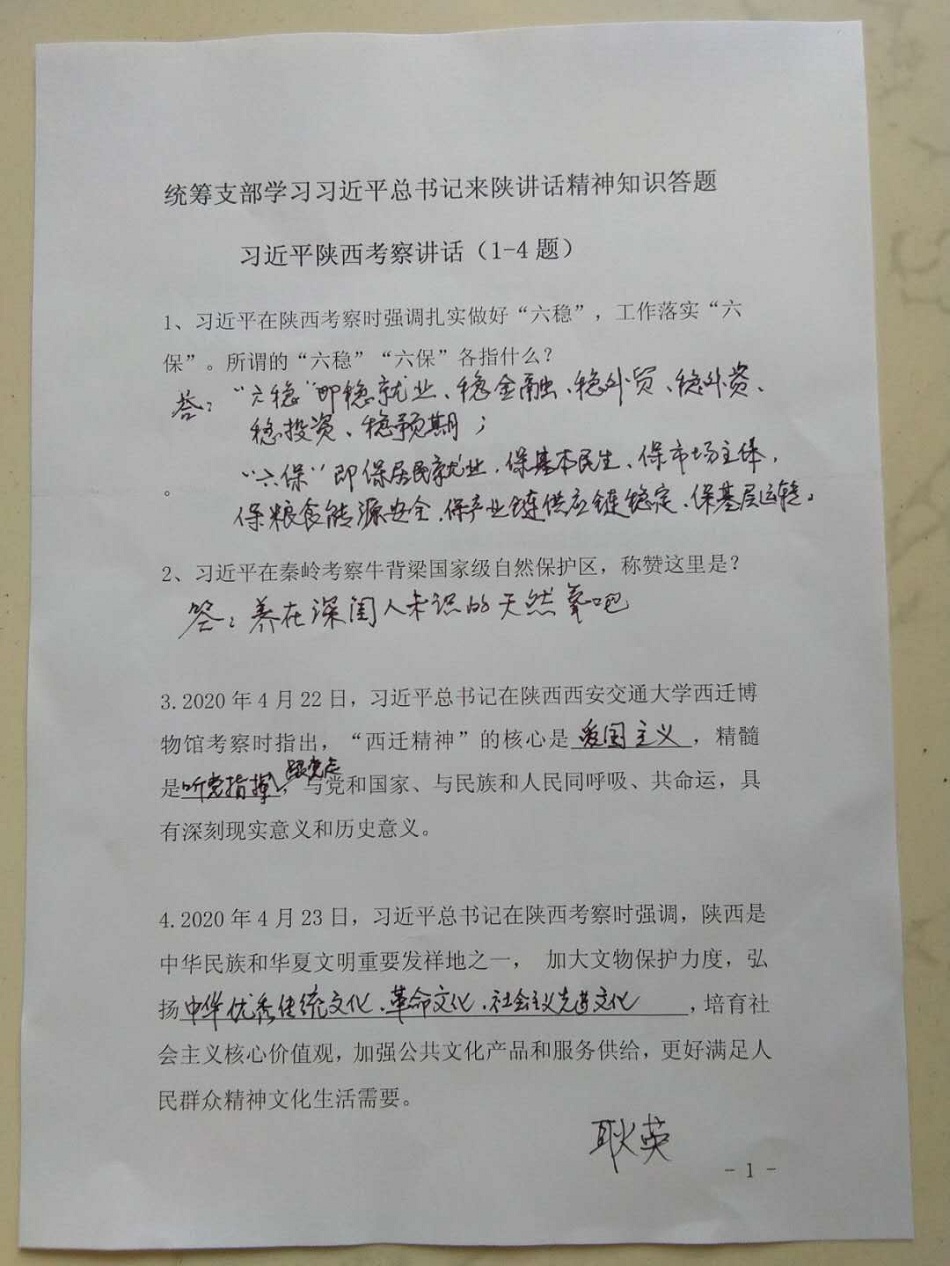 统筹支部学习习近平总书记来陕讲话精神知识答题
习近平陕西考察讲话（1-4 题）
1、习近平在陕西考察时强调扎实做好“六稳”，工作落实“六
保”。所谓的“六稳”“六保”各指什么？
答：“六稳”即稳就业、稳金融、稳外贸、稳外资、
稳投资、稳预期；
“六保”即保居民就业，保基本民生、保市场主体，
。保粮食能源安全，保产业链供应链稳定、保基层运转。
2、习近平在秦岭考察牛背梁国家级自然保护区，称赞这里是？
答：养在深闺人未识的天然氧吧
3.2020 年 4 月 22 日，习近平总书记在陕西西安交通大学西迁博
物馆考察时指出，“西迁精神”的核心是爱国主义，精髓
是听党指挥、跟党走，与党和国家、与民族和人民同呼吸、共命运，具
有深刻现实意义和历史意义。
4.2020 年 4 月 23 日，习近平总书记在陕西考察时强调，陕西是
中华民族和华夏文明重要发祥地之一， 加大文物保护力度，弘
扬中华优秀传统文化、革命文化、社会主义先进文化，培育社
会主义核心价值观，加强公共文化产品和服务供给，更好满足人
民群众精神文化生活需要。
耿英
- 1 -